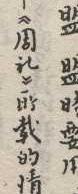 盟盟時要用
《周礼》所載的情